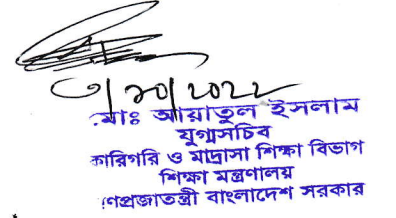 ৩/১০/২০২২
মোঃ আয়াতুল ইসলাম
যুগ্মসচিব
কারিগরি ও মাদ্রাসা শিক্ষা বিভাগ
শিক্ষা মন্ত্রণালয়
গণপ্রজাতন্ত্রী বাংলাদেশ সরকার